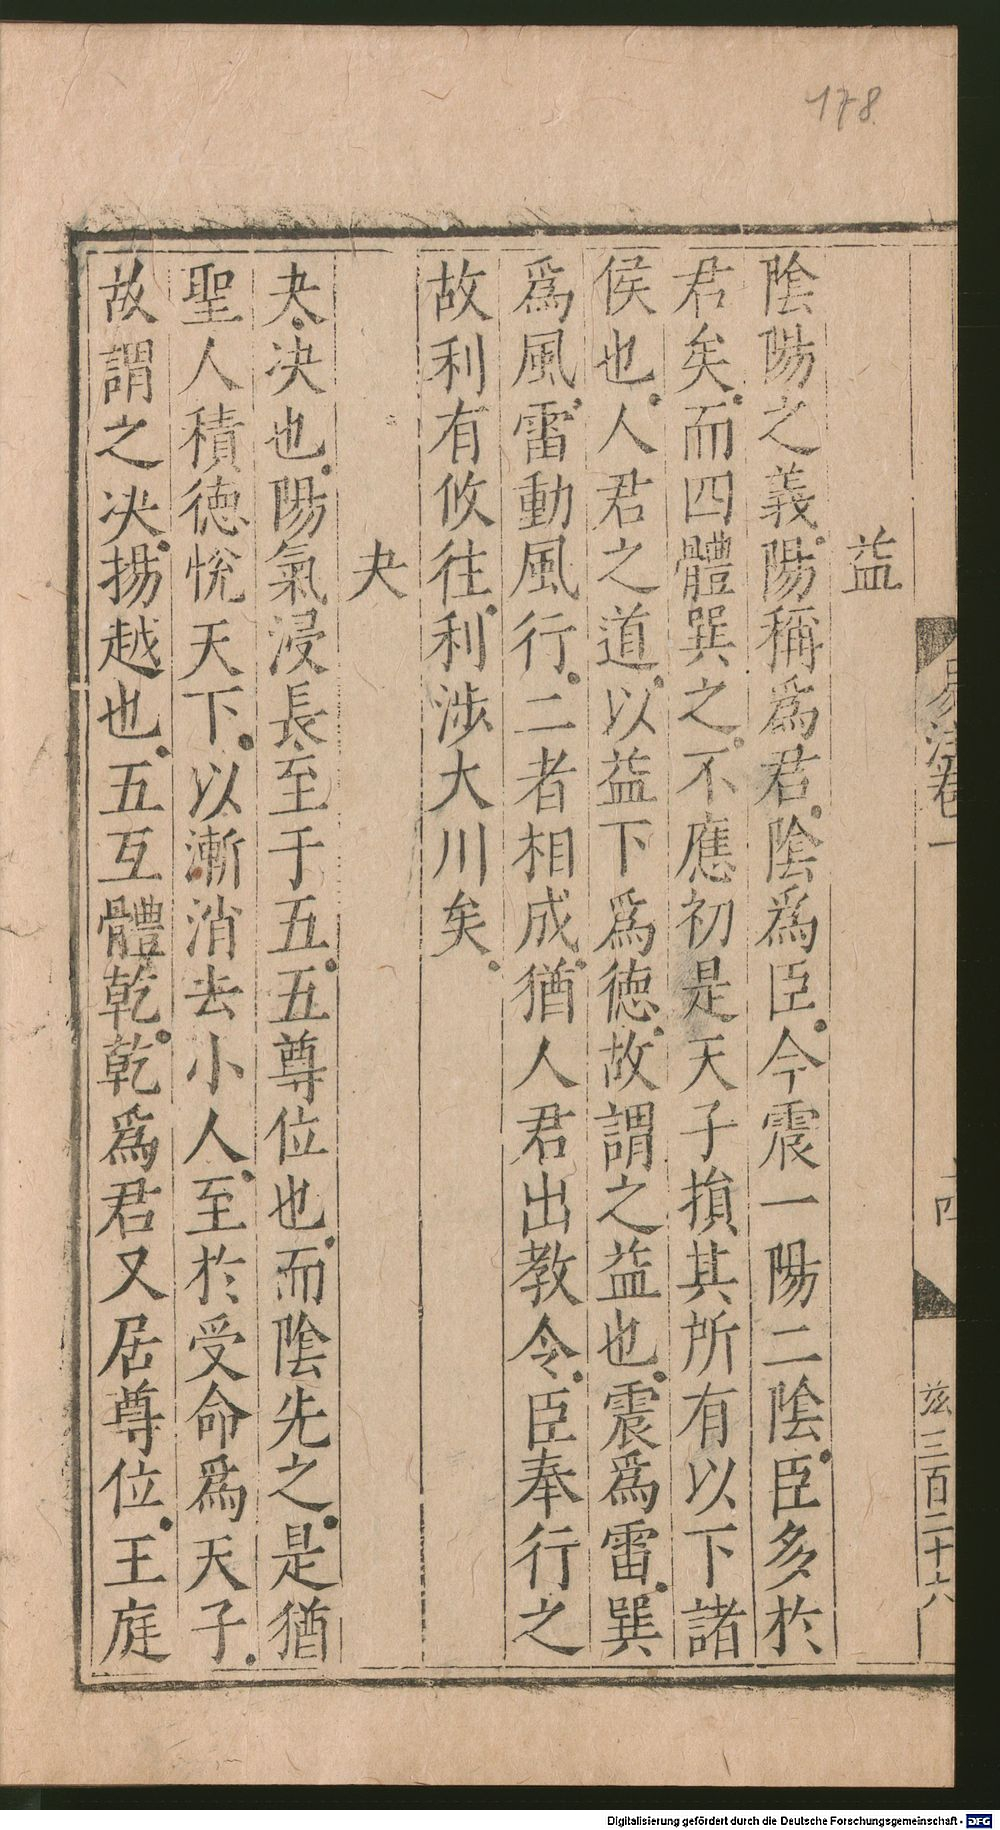 178
易注卷一
十四
茲三百二十六
益
陰陽之義陽稱爲君陰爲臣今震一陽二陰臣多於
君矣而四體巽之不應初是天子損其所有以下諸
侯也人君之道以益下爲德故謂之益也震爲雷巽
爲風雷動風行二者相成猶人君出教令臣奉行之
故利有攸往利涉大川矣
夬
夬決也陽氣浸長至于五五尊位也而陰先之是猶
聖人積德悅天下以漸消去小人至於受命爲天子
故謂之決揚越也五互體乾乾爲君又居尊位王庭
Digitalisierung gefördert durch die Deutsche Forschungsgemeinschaft - DFG